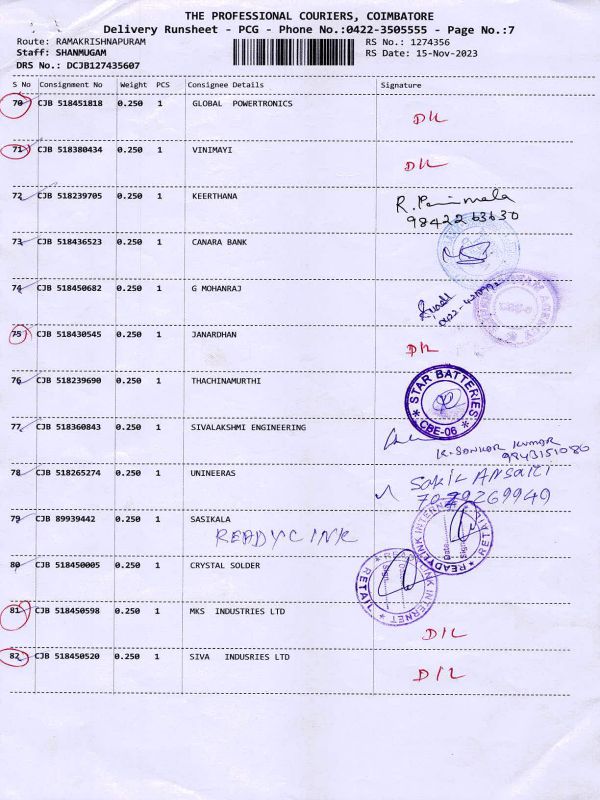 THE PROFESSIONAL COURIERS, COIMBATORE
Delivery Runsheet - PCG - Phone No.:0422-3505555 - Page No.:7
Route: RAMAKRISHNAPURAM RS No.: 1274356
Staff: SHANMUGAM RS Date: 15-Nov-2023
DRS No.: DCJB127435607
S No Consignment No Weight PCS Consignee Details Signature
70 CJB 518451818 0.250 1 GLOBAL POWERTRONICS D/L
71 CJB 518380434 0.250 1 VINIMAYI D/L
72 CJB 518239705 0.250 1 KEERTHANA R. Parimala
9842263630
73 CJB 518436523 0.250 1 CANARA BANK
74 CJB 518450682 0.250 1 G MOHANRAJ
75 CJB 518430545 0.250 1 JANARDHAN D/L
76 CJB 518239690 0.250 1 THACHINAMURTHI
STAR BATTERIES
CBE-06
77 CJB 518360843 0.250 1 SIVALAKSHMI ENGINEERING
K. SANKAR KUMAR
9843151080
78 CJB 518265274 0.250 1 UNINEERAS SAKIL ANSARI
7079269949
79 CJB 89939442 0.250 1 SASIKALA
READYLINK
READYLINK INTERNET RETAIL
80 CJB 518450005 0.250 1 CRYSTAL SOLDER
LINK INTERNET RETAIL
81 CJB 518450598 0.250 1 MKS INDUSTRIES LTD D/L
82 CJB 518450520 0.250 1 SIVA INDUSRIES LTD D/L